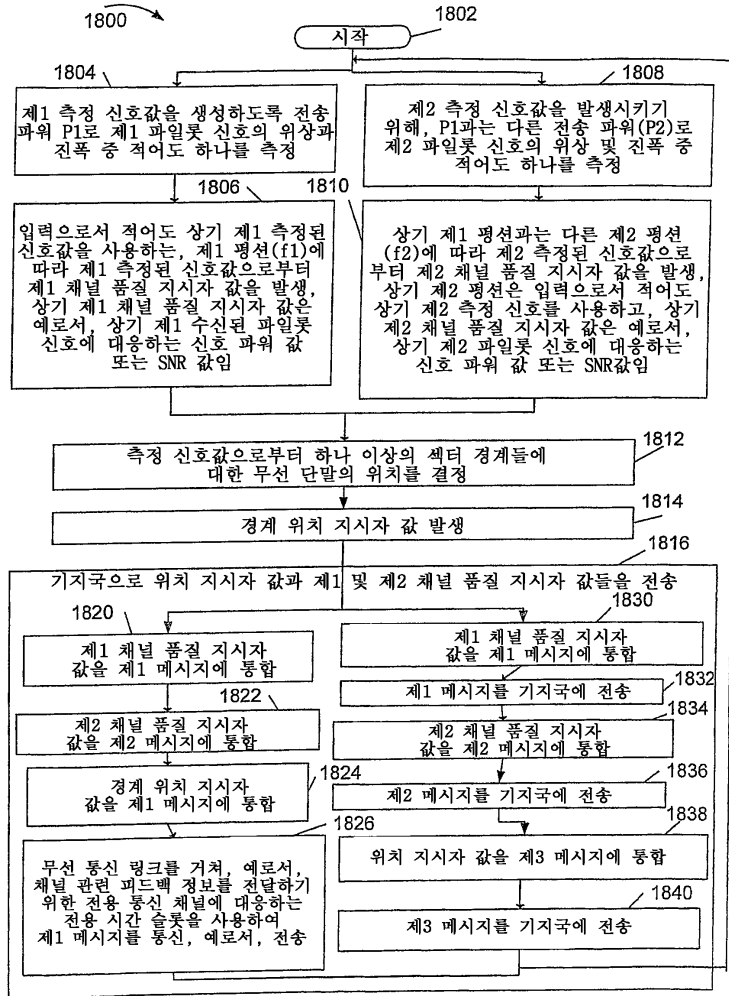 1800
1802
시작
1804
제1 측정 신호값을 생성하도록 전송
파워 P1로 제1 파일롯 신호의 위상과
진폭 중 적어도 하나를 측정
1808
제2 측정 신호값을 발생시키기
위해, P1과는 다른 전송 파워(P2)로
제2 파일롯 신호의 위상 및 진폭 중
적어도 하나를 측정
1806
입력으로서 적어도 상기 제1 측정된
신호값을 사용하는, 제1 펑션(f1)에
따라 제1 측정된 신호값으로부터
제1 채널 품질 지시자 값을 발생,
상기 제1 채널 품질 지시자 값은
예로서, 상기 제1 수신된 파일롯
신호에 대응하는 신호 파워 값
또는 SNR 값임
1810
상기 제1 펑션과는 다른 제2 펑션
(f2)에 따라 제2 측정된 신호값으로
부터 제2 채널 품질 지시자 값을 발생,
상기 제2 펑션은 입력으로서 적어도
상기 제2 측정 신호를 사용하고, 상기
제2 채널 품질 지시자 값은 예로서,
상기 제2 파일롯 신호에 대응하는
신호 파워 값 또는 SNR값임
1812
측정 신호값으로부터 하나 이상의 섹터 경계들에
대한 무선 단말의 위치를 결정
1814
경계 위치 지시자 값 발생
1816
기지국으로 위치 지시자 값과 제1 및 제2 채널 품질 지시자 값들을 전송
1820
제1 채널 품질 지시자
값을 제1 메시지에 통합
1822
제2 채널 품질 지시자
값을 제2 메시지에 통합
1824
경계 위치 지시자
값을 제1 메시지에 통합
1826
무선 통신 링크를 거쳐, 예로서,
채널 관련 피드백 정보를 전달하기
위한 전용 통신 채널에 대응하는
전용 시간 슬롯을 사용하여
제1 메시지를 통신, 예로서, 전송
1830
제1 채널 품질 지시자
값을 제1 메시지에 통합
1832
제1 메시지를 기지국에 전송
1834
제2 채널 품질 지시자
값을 제2 메시지에 통합
1836
제2 메시지를 기지국에 전송
1838
위치 지시자 값을 제3 메시지에 통합
1840
제3 메시지를 기지국에 전송